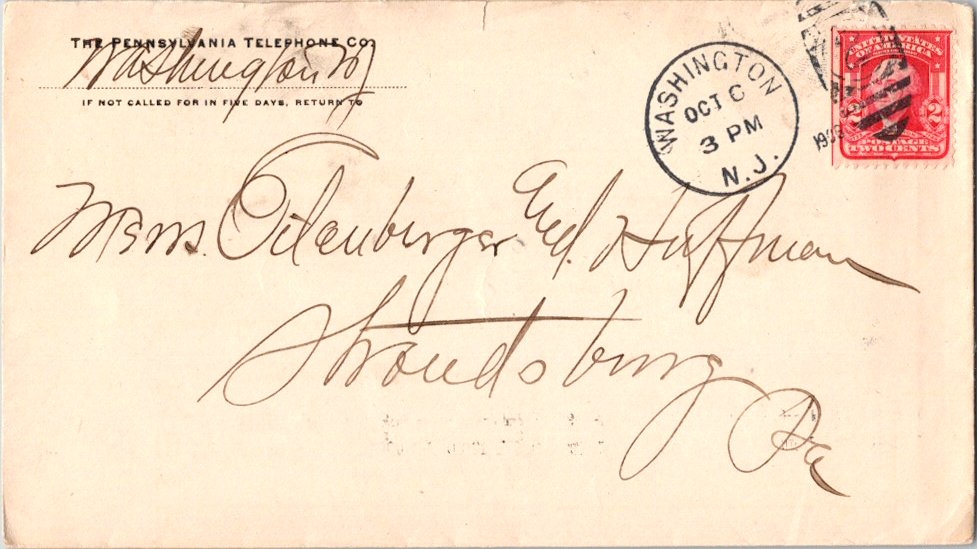 THE PENNSYLVANIA TELEPHONE CO.
Washington NJ
IF NOT CALLED FOR IN FIVE DAYS, RETURN TO
WASHINGTON
OCT 6
3 PM
N.J.
UNITED STATES
OF AMERICA
2 2
TWO CENTS
Messrs. Eilenberger and Huffman
Stroudsburg
Pa